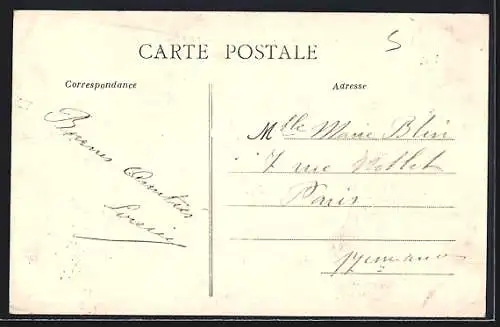 CARTE POSTALE
5
Correspondance
Bonnes Amitiés
Adresse
Mlle Marie Blin
7 rue Nollet
Paris